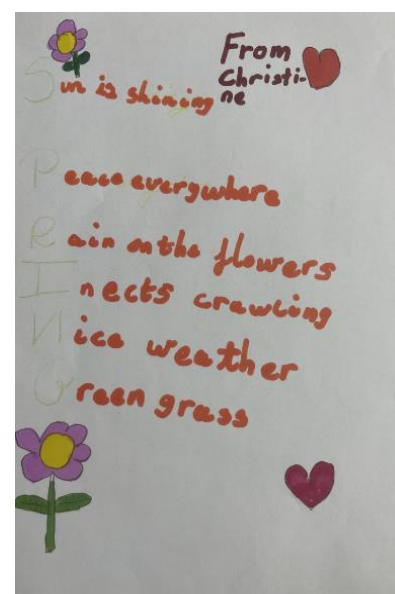 From
Christi-
ne
Sun is shining
Peace everywhere
Rain on the flowers
Inects crawling
Nice weather
Green grass